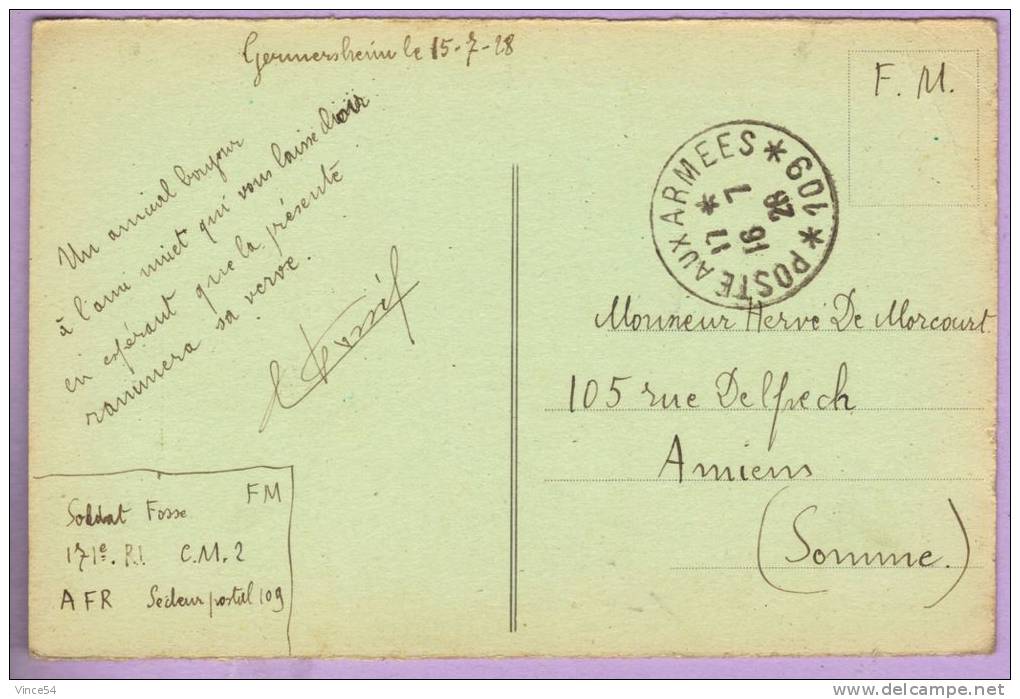 Germersheim le 15-7-28
F. M.
Un amical bonjour
à l'ami muet qui vous laisse choir
en espérant que la présente
ranimera sa verve.
POSTE AUX ARMEES * 109 *
17 *
16
7
28
Monsieur Hervé De Morcourt
105 rue Delpech
Amiens
(Somme.)
FM
Soldat Fosse
171e. R.I. C.M.2
AFR Secteur postal 109
Vince54
www.delcampe.net